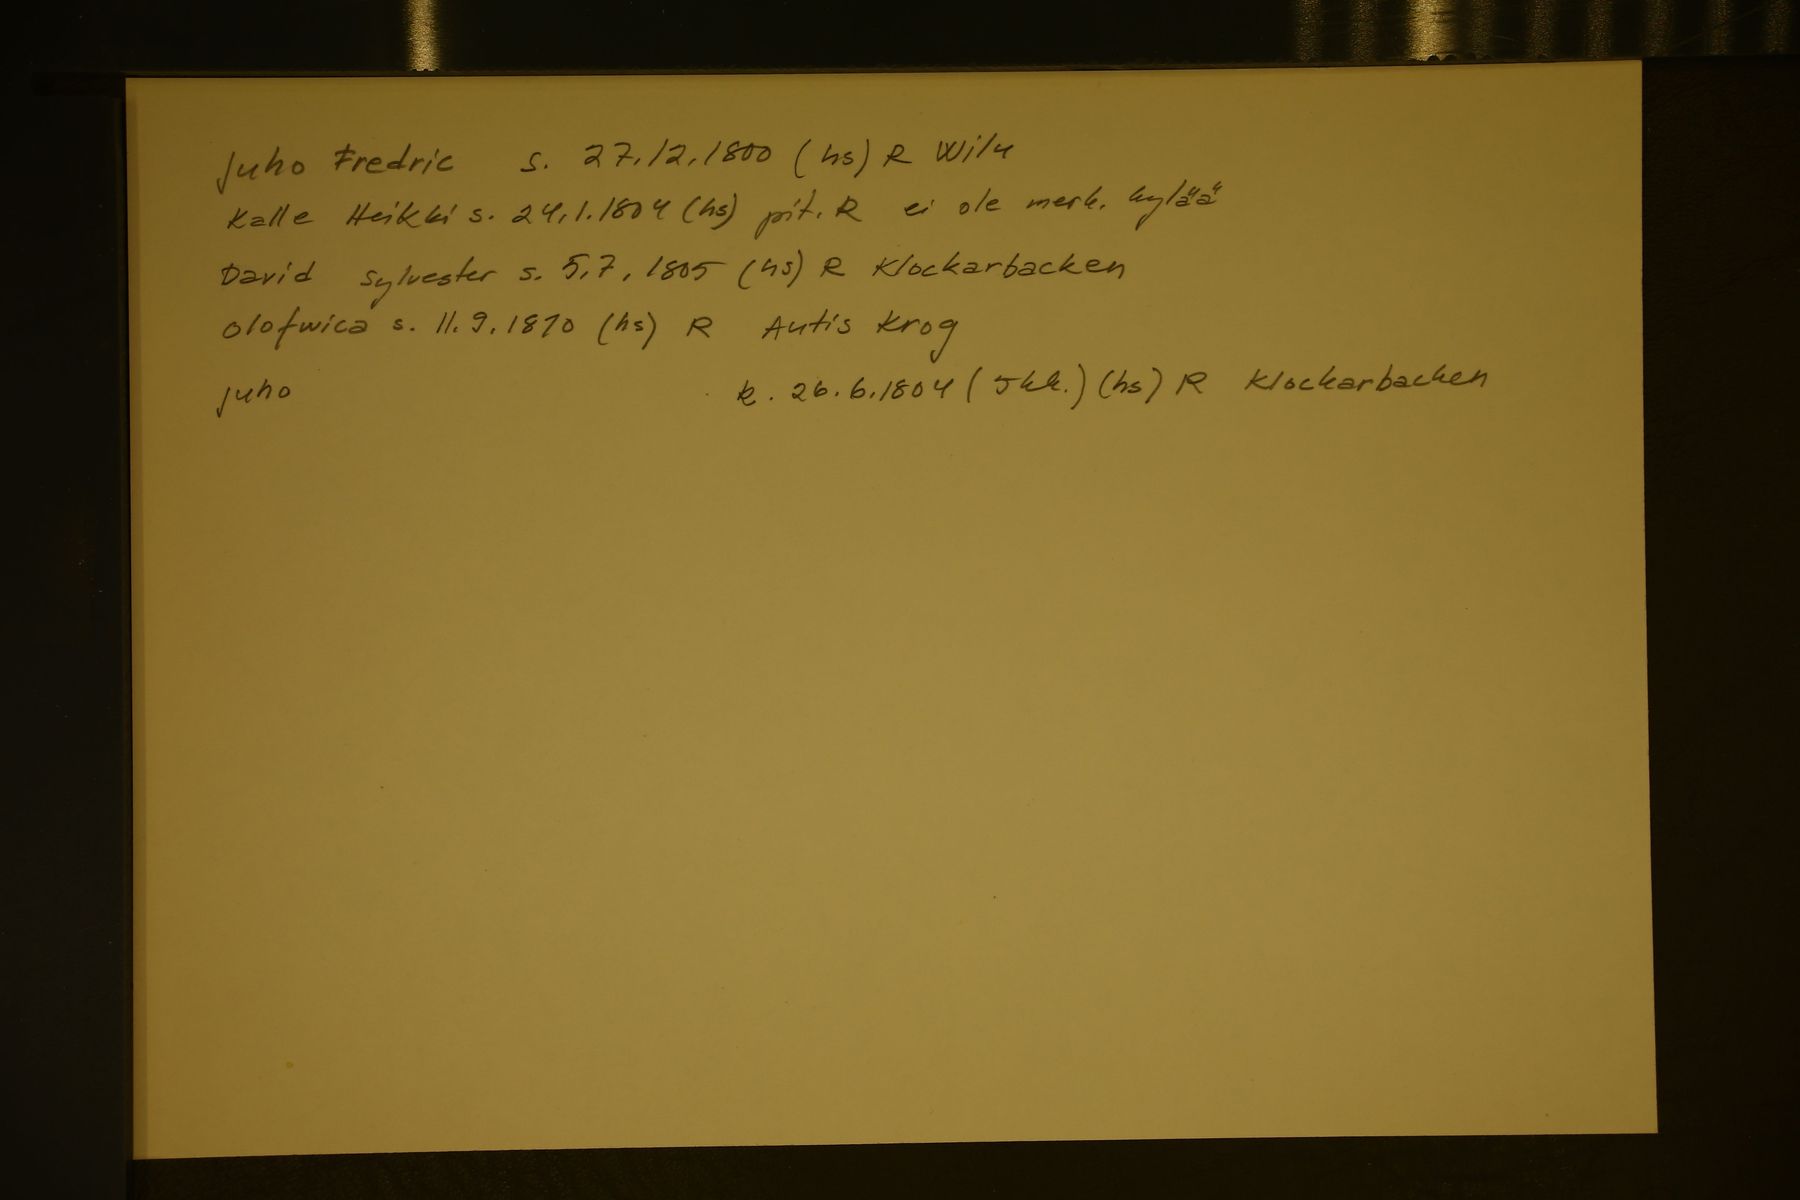 Juho Fredric s. 27.12.1800 (hs) R Wilu
Kalle Heikki s. 24.1.1804 (hs) pit. R ei ole merk. kylää
David Sylvester s. 5.7.1805 (hs) R Klockarbacken
Olofwica s. 11.9.1810 (hs) R Autis Krog
Juho k. 26.6.1804 (5kk.) (hs) R Klockarbacken